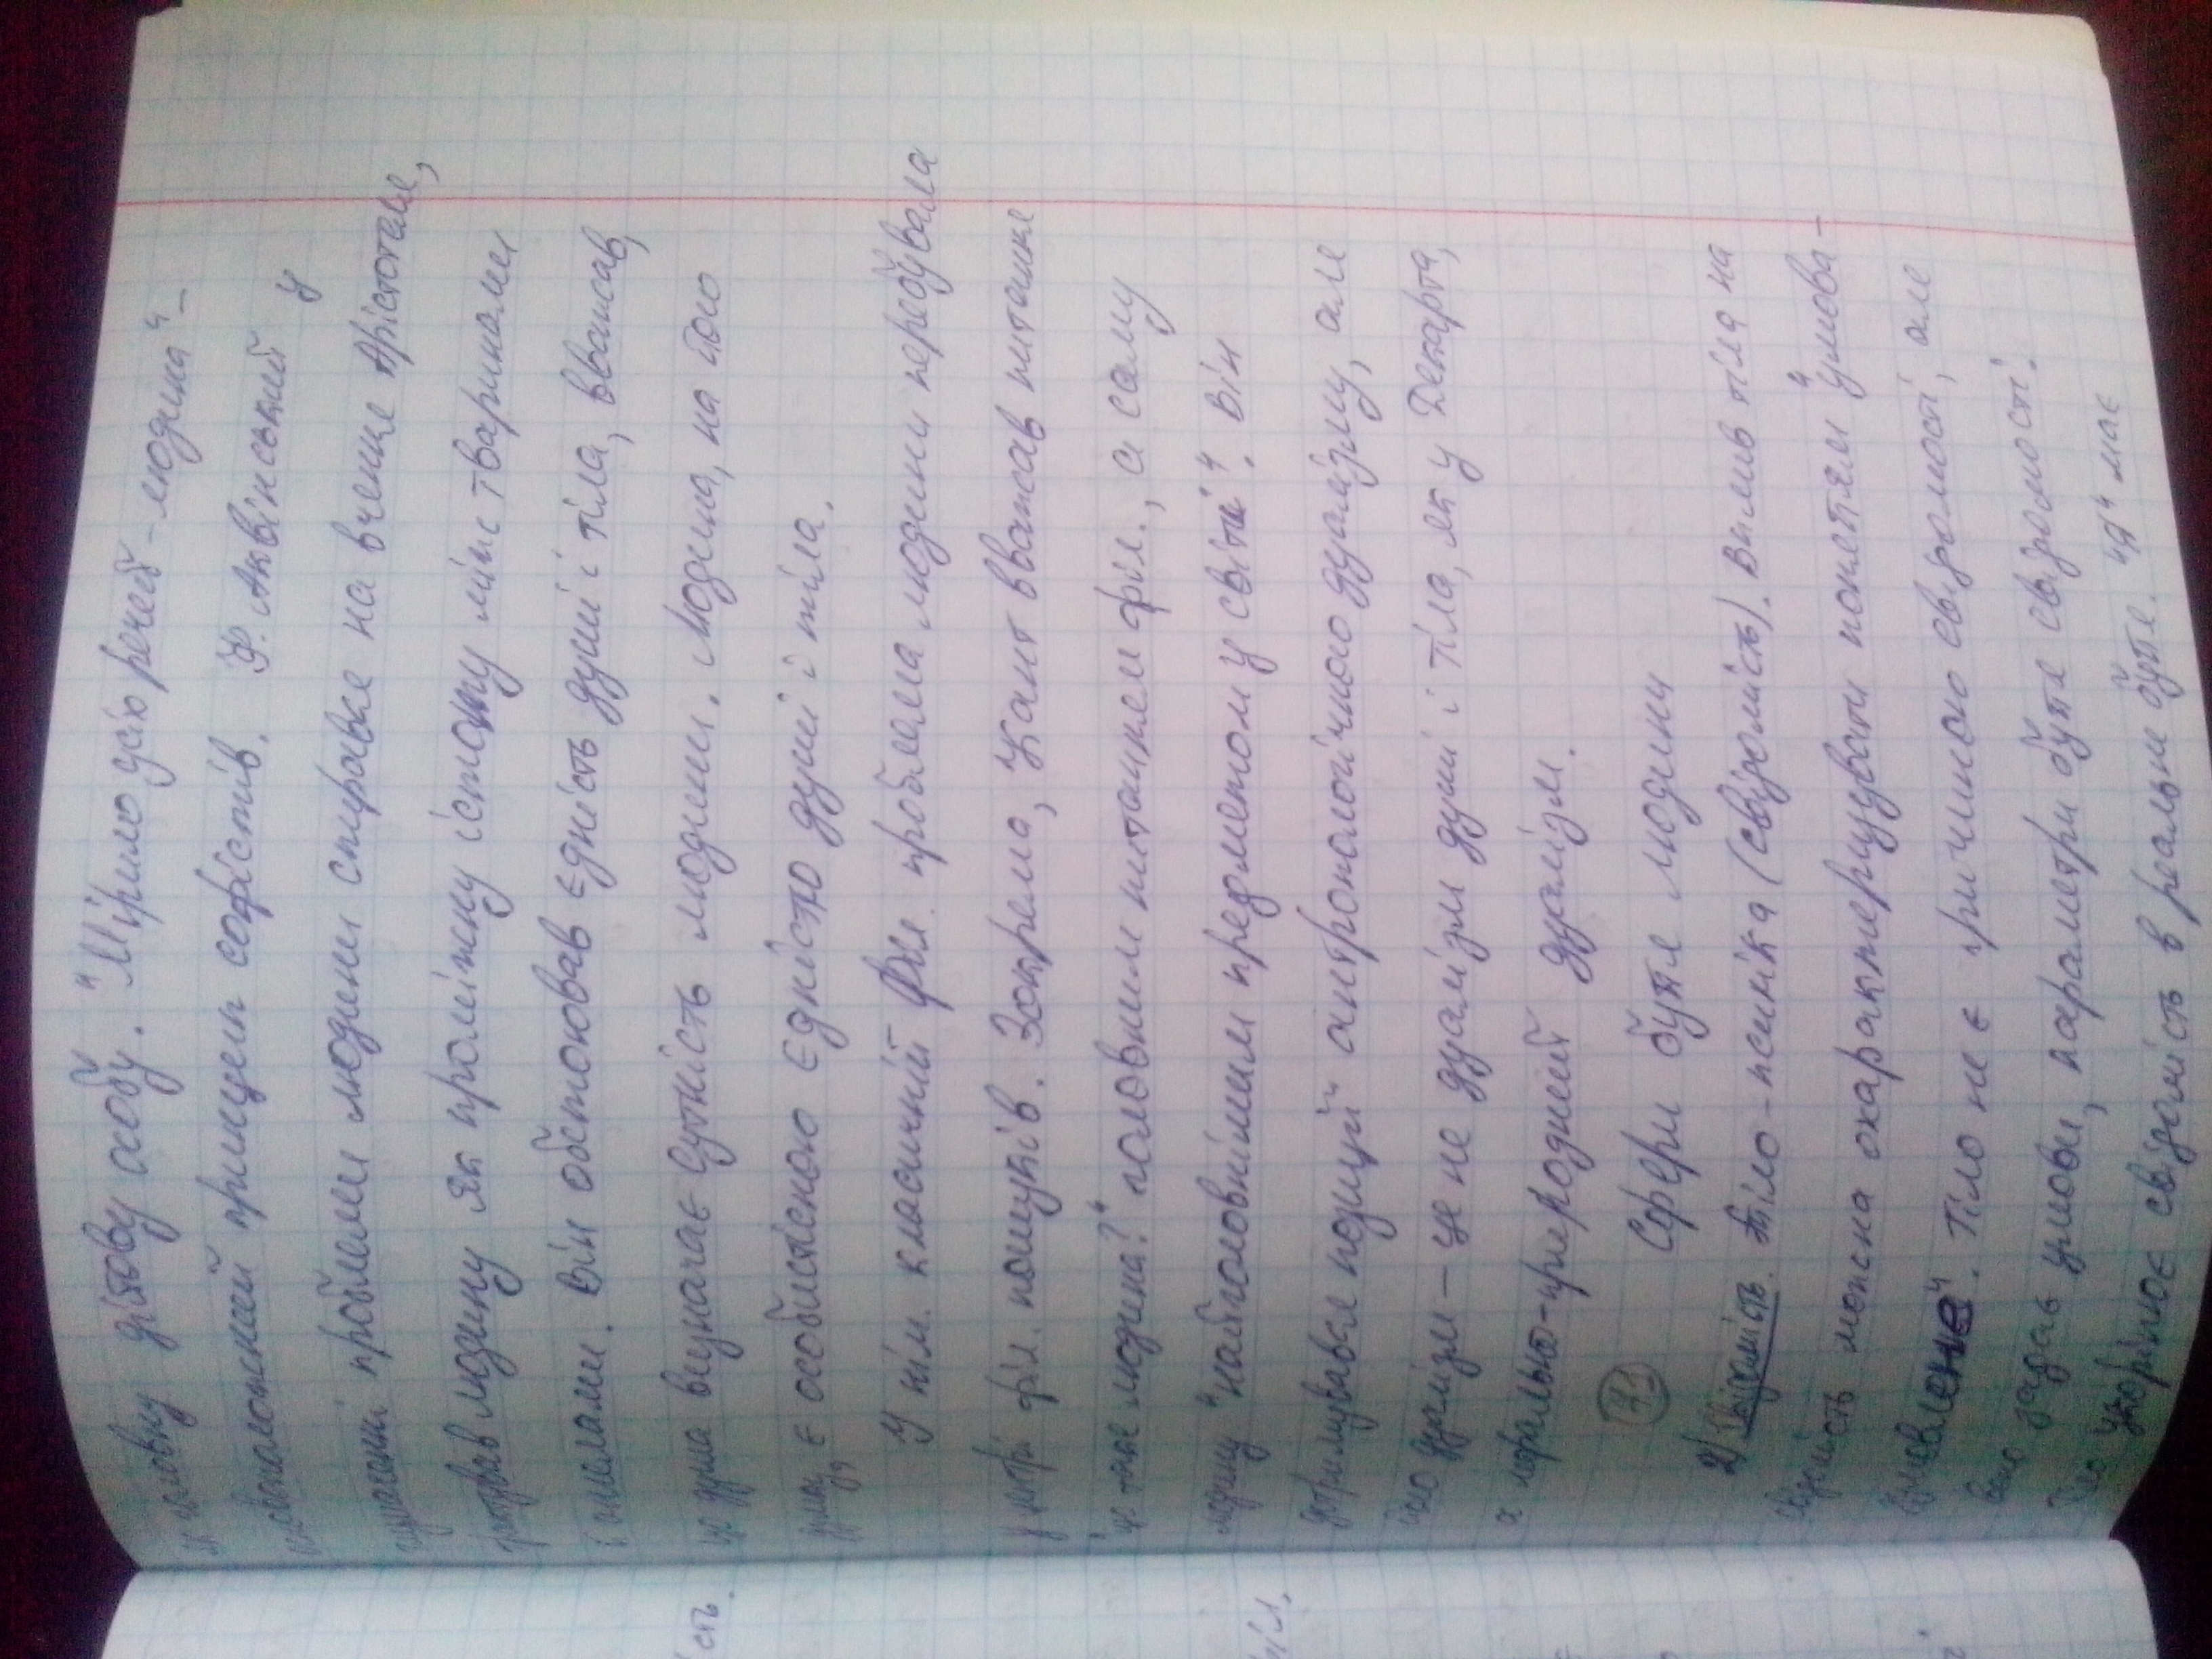 як головну дійову особу. "Мірило усіх речей - людина" -
основоположний принцип софістів. Ф. Аквінський у
тлумаченні проблеми людини спирався на вчення Арістотеля,
трактував людину як проміжну істоту між тваринами
і ангелами. Він обстоював єдність душі і тіла, вважав,
що душа визначає сутність людини. Людина, на його
думку, є особистісною єдністю душі і тіла.
У нім. класичній філ. проблема людини перебувала
у центрі філ. пошуків. Зокрема, Кант вважав питання
"що таке людина?" головним питанням філ., а саму
людину "найголовнішим предметом у світі". Він
дотримувався позиції антропологічного дуалізму, але
його дуалізм - це не дуалізм душі і тіла, як у Декарта,
а морально-природний дуалізм.
71 Сфери буття людини
2) Свідомість. Тіло - психіка (свідомість). Вплив тіла на
свідомість можна охарактеризувати поняттям "умова-
зумовлене". Тіло не є причиною свідомості, але
воно задає умови, параметри буття свідомості.
Тіло укорінює свідомість в реальне буття. "Я" має
сть.
філ.